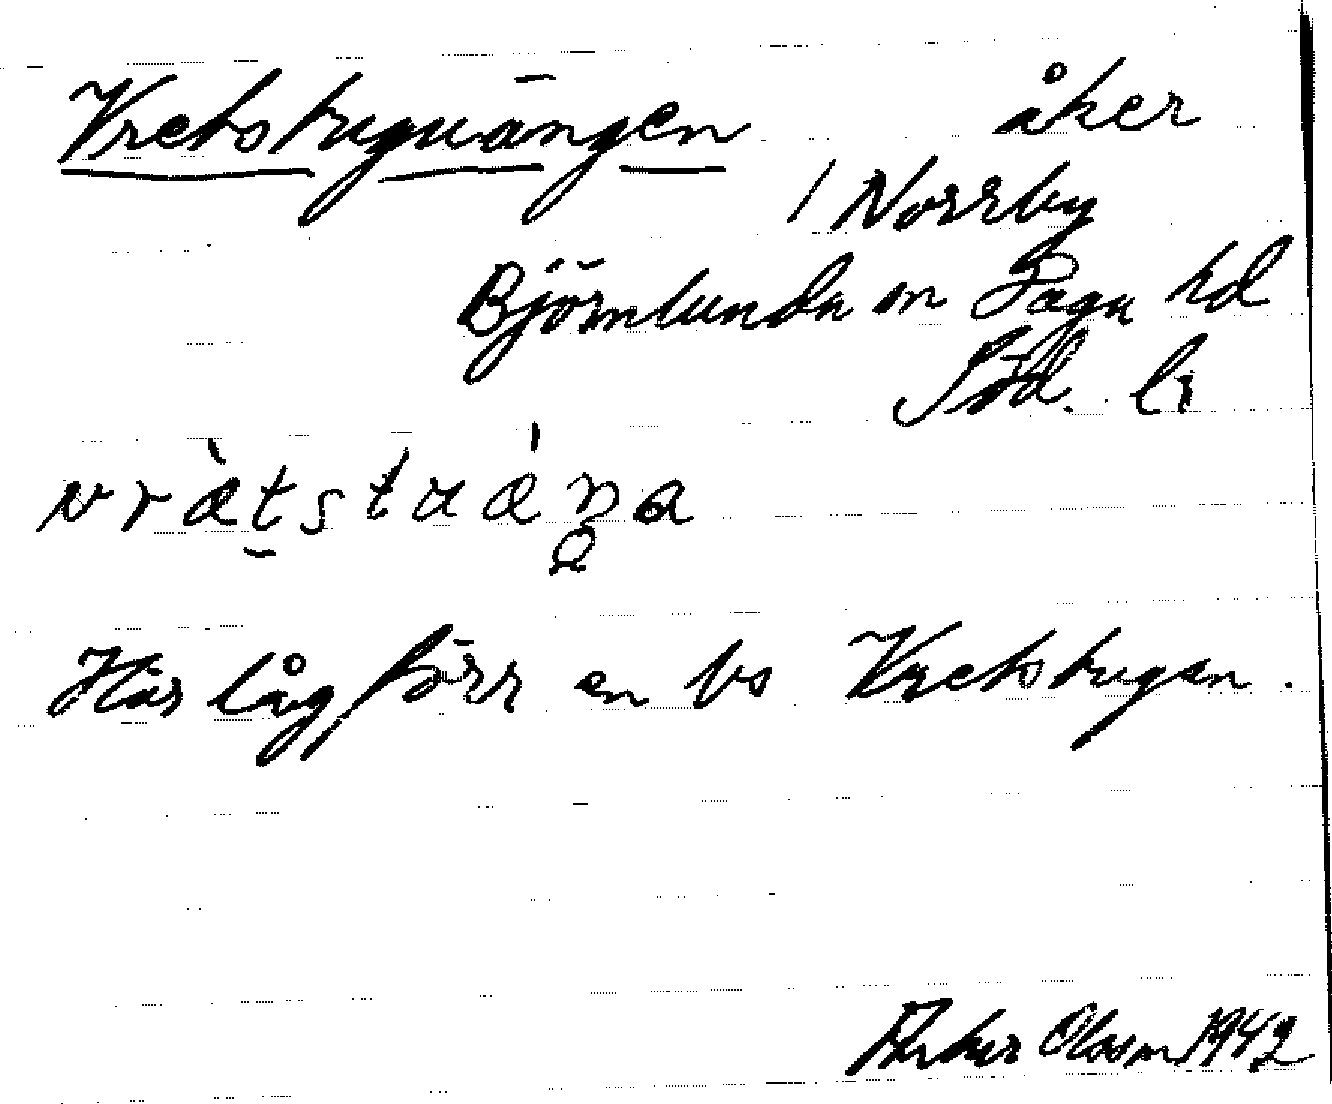 Vretstuguängen åker
/ Norrby
Björnlunda sn Daga hd
Söd. län
vrætstuæŋa
Här låg förr en bs Vretstugan.
Olsson 1942